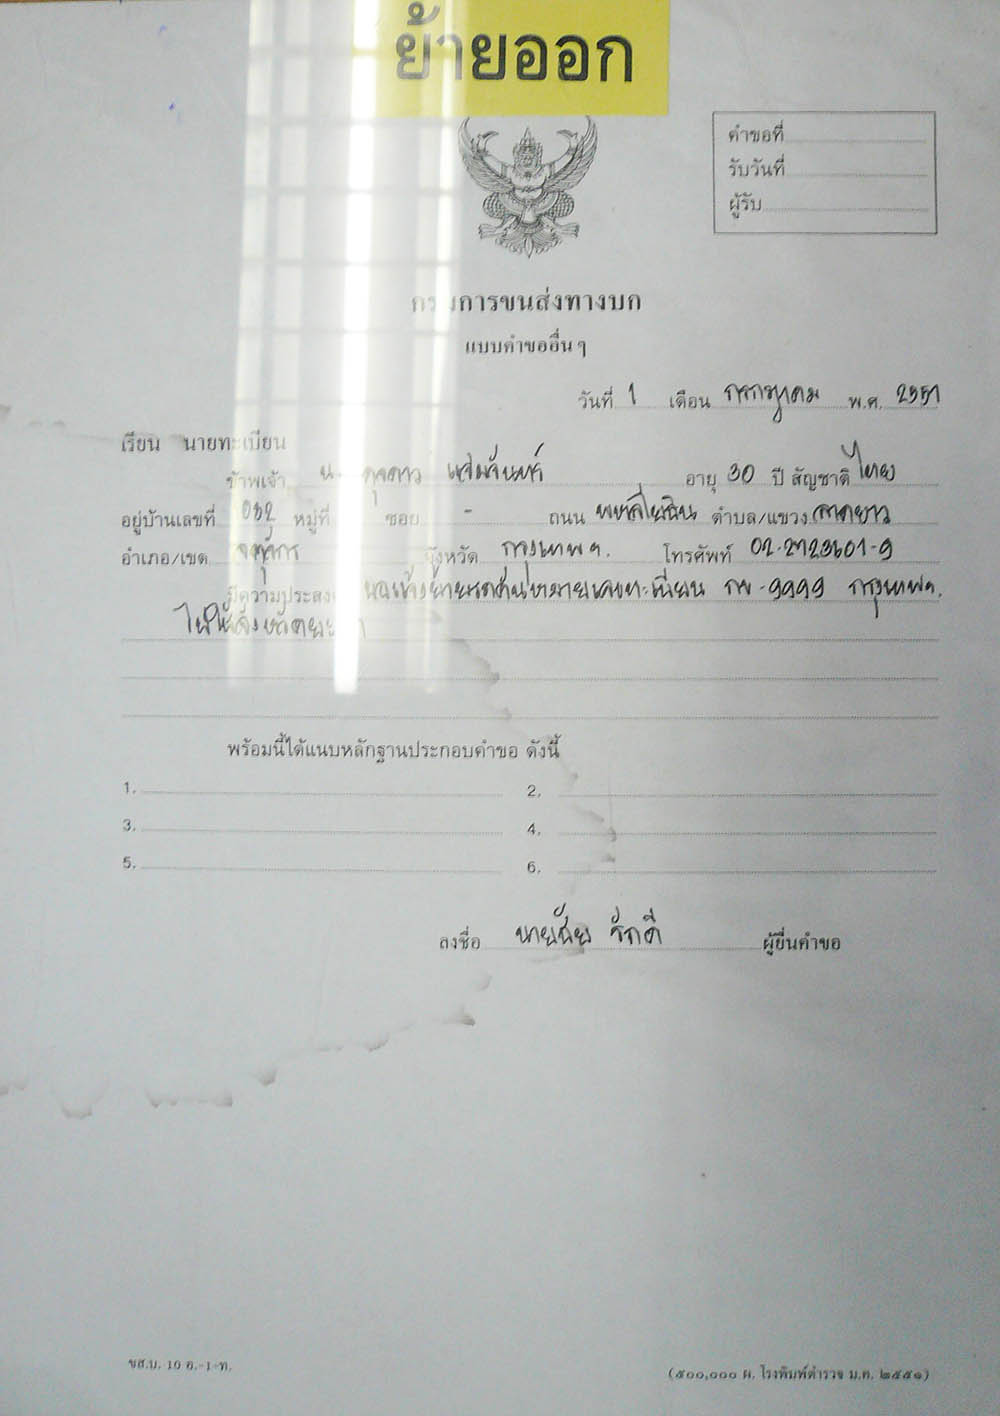 ย้ายออก
คำขอที่
รับวันที่
ผู้รับ
กรมการขนส่งทางบก
แบบคำขออื่น ๆ
วันที่ 1 เดือน กรกฎาคม พ.ศ. 2551
เรียน นายทะเบียน
ข้าพเจ้า แสงจันทร์ อายุ 30 ปี สัญชาติ ไทย
อยู่บ้านเลขที่ 1032 หมู่ที่ ซอย - ถนน พหลโยธิน ตำบล/แขวง ลาดยาว
อำเภอ/เขต จตุจักร จังหวัด กรุงเทพฯ. โทรศัพท์ 02-2723601-9
มีความประสงค์ ขอแจ้งย้ายรถคันหมายเลขทะเบียน กข-9999 กรุงเทพฯ.
ไปไว้จังหวัด
พร้อมนี้ได้แนบหลักฐานประกอบคำขอ ดังนี้
1. 2.
3. 4.
5. 6.
ลงชื่อ นายฉัย รักดี ผู้ยื่นคำขอ
ขส.บ. 10 อ.-1-ท.
(๕๐๐,๐๐๐ ผ. โรงพิมพ์ตำรวจ ม.ค. ๒๕๕๑)